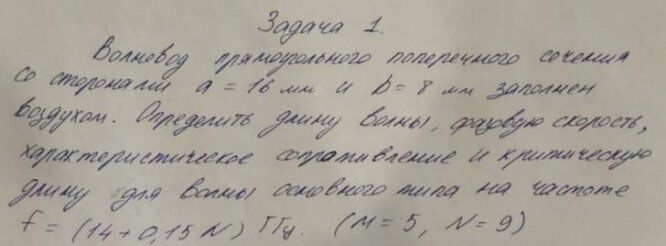 Задача 1.
Волновод прямоугольного поперечного сечения
со сторонами a = 16 мм и b = 8 мм заполнен
воздухом. Определить длину волны, фазовую скорость,
характеристическое сопротивление и критическую
длину для волны основного типа на частоте
f = (14 + 0,15 N) ГГц. (M = 5, N = 9)